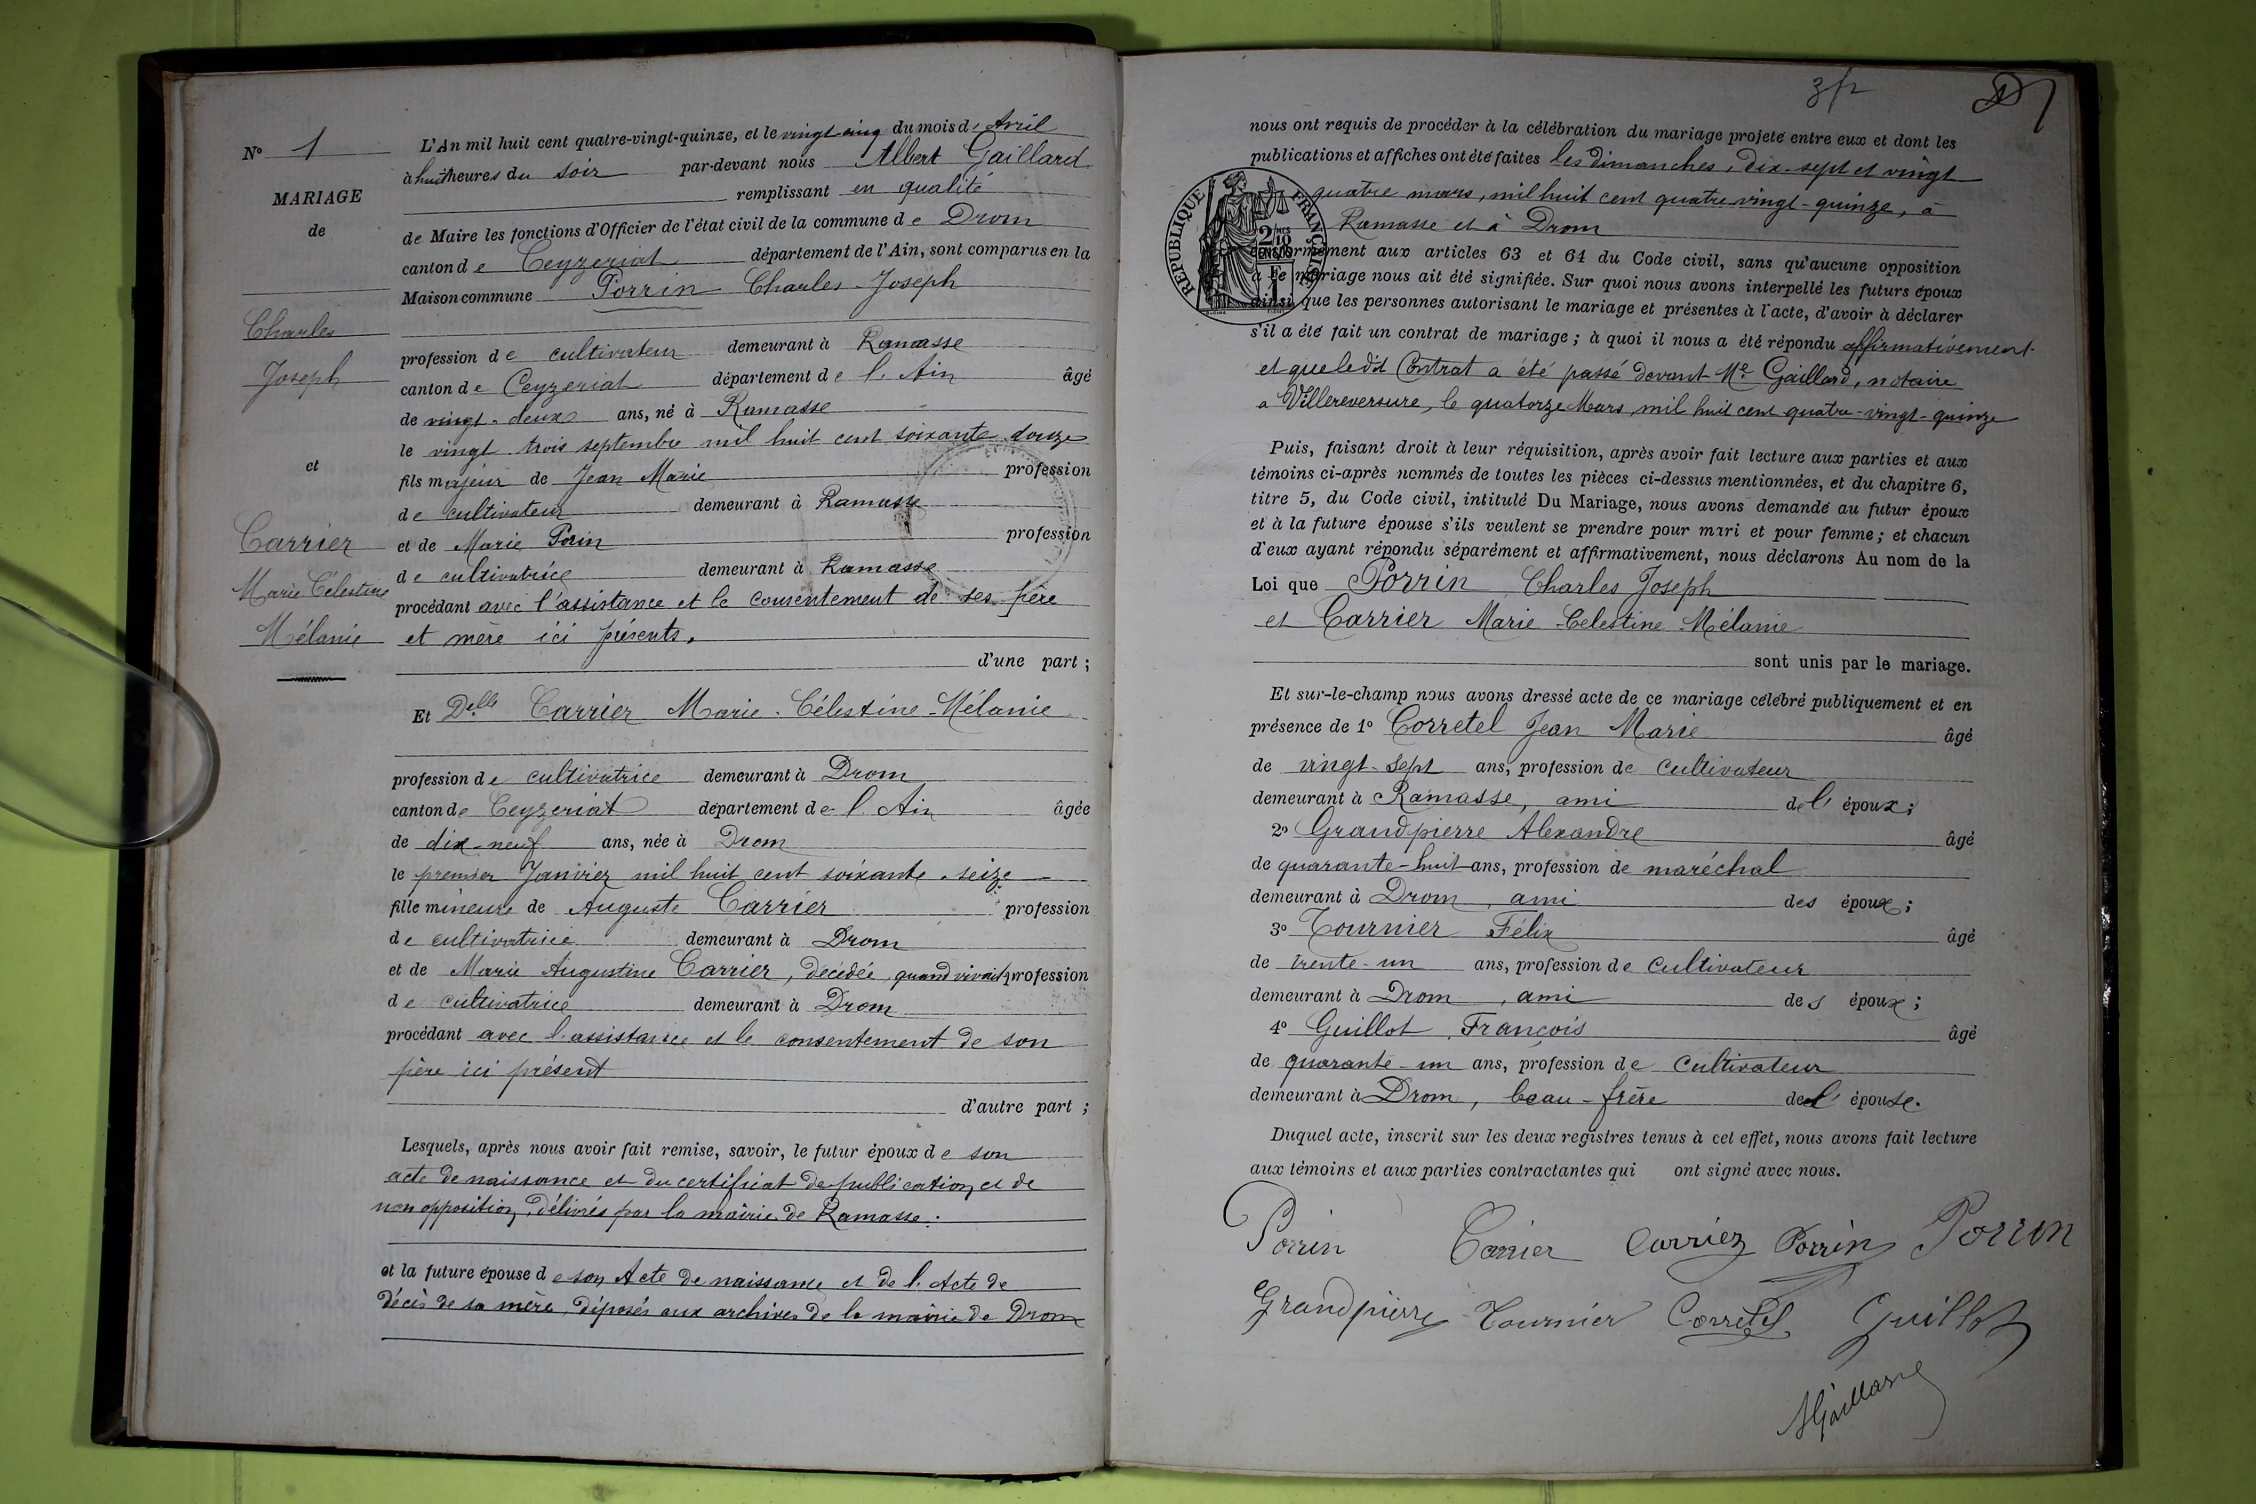 N° 1
MARIAGE
de
Charles
Joseph
et
Carrier
Marie Célestine
Mélanie
L'An mil huit cent quatre-vingt-quinze, et le vingt cinq du mois d' Avril
à huit heures du soir par-devant nous Albert Gaillard
remplissant en qualité
de Maire les fonctions d'Officier de l'état civil de la commune de Drom
canton de Ceyzeriat département de l'Ain, sont comparus en la
Maison commune Porrin Charles-Joseph
profession de cultivateur demeurant à Ramasse
canton de Ceyzeriat département de l'Ain âgé
de vingt-deux ans, né à Ramasse
le vingt trois septembre mil huit cent soixante douze
fils majeur de Jean Marie profession
de cultivateur demeurant à Ramasse
et de Marie Porin profession
de cultivatrice demeurant à Ramasse
procédant avec l'assistance et le consentement de ses père
et mère ici présents.
d'une part ;
Et Delle Carrier Marie-Célestine-Mélanie
profession de cultivatrice demeurant à Drom
canton de Ceyzeriat département de l'Ain âgée
de dix-neuf ans, née à Drom
le premier Janvier mil huit cent soixante-seize
fille mineure de Auguste Carrier profession
de cultivatrice demeurant à Drom
et de Marie Augustine Carrier, décédée, quand vivait profession
de cultivatrice demeurant à Drom
procédant avec l'assistance et le consentement de son
père ici présent
d'autre part ;
Lesquels, après nous avoir fait remise, savoir, le futur époux de son
acte de naissance et du certificat de publication et de
non opposition, délivrés par la mairie de Ramasse.
et la future épouse de son Acte de naissance et de l'Acte de
décès de sa mère, déposés aux archives de la mairie de Drom
nous ont requis de procéder à la célébration du mariage projeté entre eux et dont les
publications et affiches ont été faites les dimanches, dix-sept et vingt
quatre mars, mil huit cent quatre vingt-quinze, à
Ramasse et à Drom
RÉPUBLIQUE FRANÇAISE
2/10 EN SUS
conformément aux articles 63 et 64 du Code civil, sans qu'aucune opposition
à ce mariage nous ait été signifiée. Sur quoi nous avons interpellé les futurs époux
ainsi que les personnes autorisant le mariage et présentes à l'acte, d'avoir à déclarer
s'il a été fait un contrat de mariage ; à quoi il nous a été répondu affirmativement
et que ledit Contrat a été passé devant Me Gaillard, notaire
a Villereversure, le quatorze Mars mil huit cent quatre-vingt-quinze
Puis, faisant droit à leur réquisition, après avoir fait lecture aux parties et aux
témoins ci-après nommés de toutes les pièces ci-dessus mentionnées, et du chapitre 6,
titre 5, du Code civil, intitulé Du Mariage, nous avons demandé au futur époux
et à la future épouse s'ils veulent se prendre pour mari et pour femme ; et chacun
d'eux ayant répondu séparément et affirmativement, nous déclarons Au nom de la
Loi que Porrin Charles Joseph
et Carrier Marie-Celestine-Mélanie
sont unis par le mariage.
Et sur-le-champ nous avons dressé acte de ce mariage célébré publiquement et en
présence de 1° Corretel Jean Marie âgé
de vingt-sept ans, profession de cultivateur
demeurant à Ramasse, ami de l' époux ;
2° Grandpierre Alexandre âgé
de quarante-huit ans, profession de maréchal
demeurant à Drom, ami des époux ;
3° Tournier Félix âgé
de trente-un ans, profession de Cultivateur
demeurant à Drom, ami des époux ;
4° Guillot François âgé
de quarante-un ans, profession de Cultivateur
demeurant à Drom, beau-frère de l' épouse.
Duquel acte, inscrit sur les deux registres tenus à cet effet, nous avons fait lecture
aux témoins et aux parties contractantes qui ont signé avec nous.
Porrin Carrier Carrier Porrin Porrin
Grandpierre Tournier Corretel Guillot
AGaillard